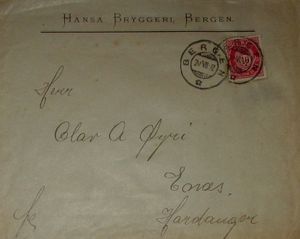 HANSA BRYGGERI, BERGEN.
BERGEN
Herr
Olav A Øyri
Hardanger